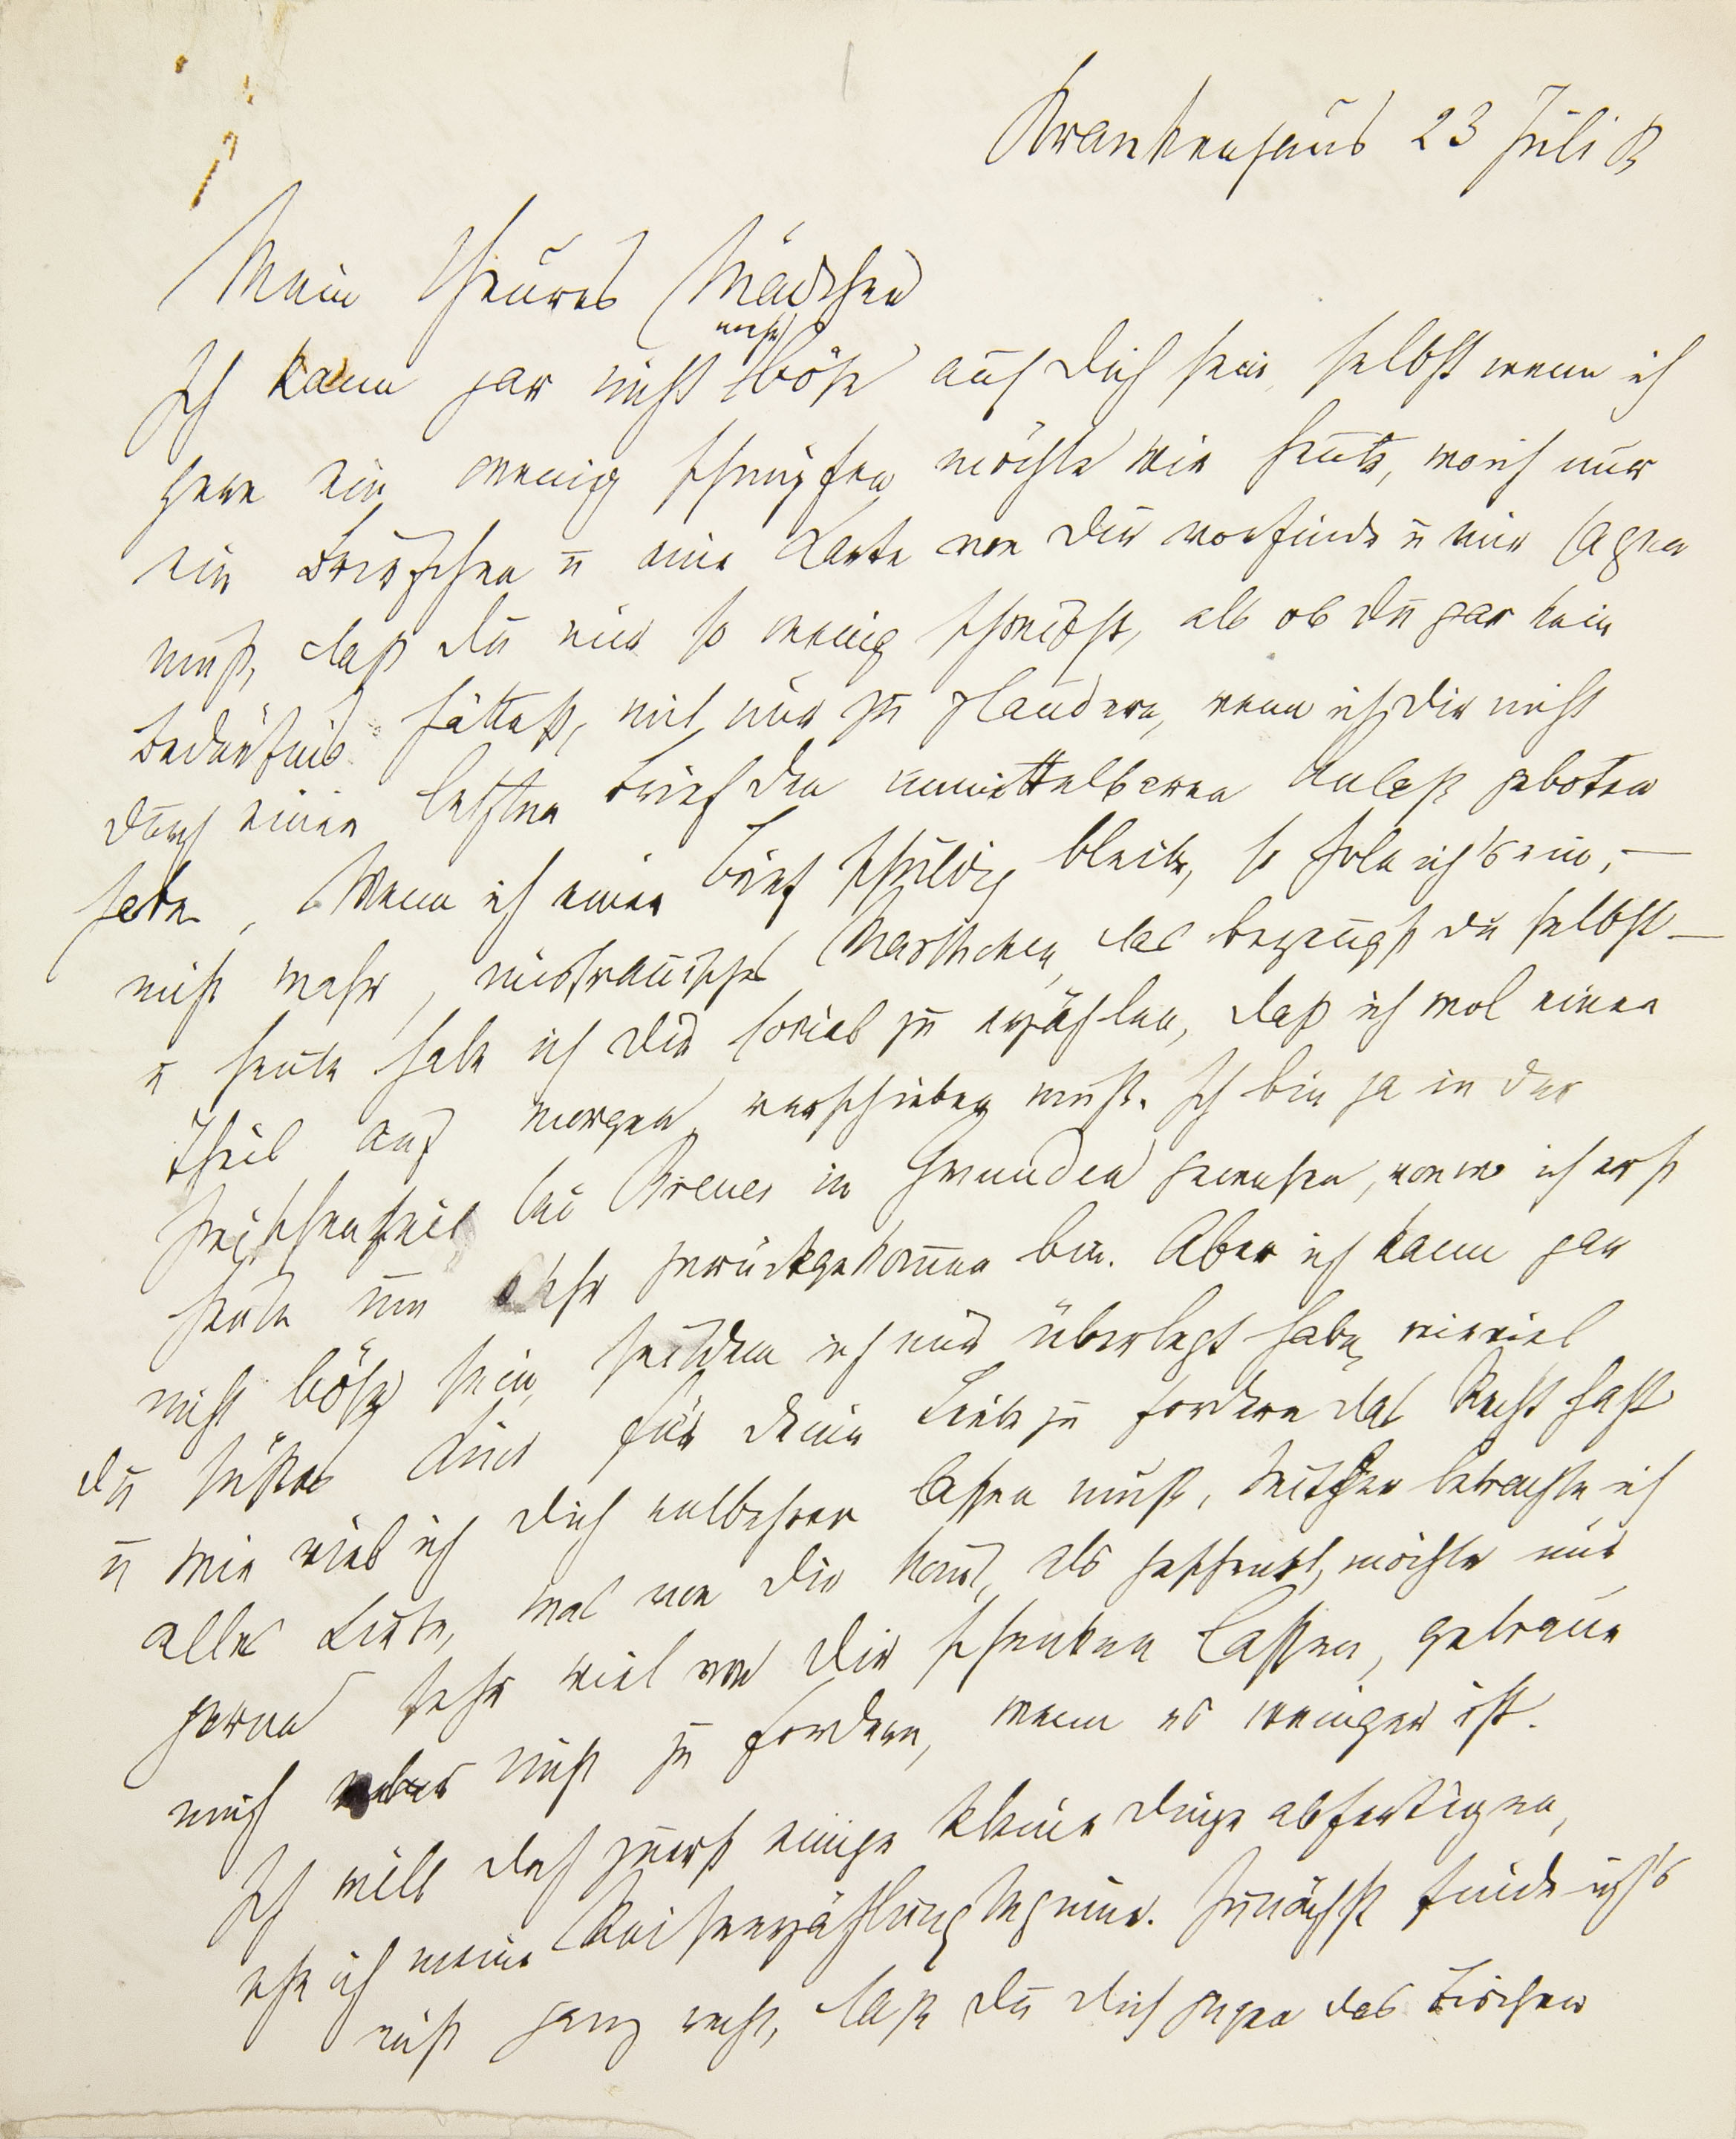 Krankenhaus 23 Juli 83
Mein theures Mädchen
Ich kann gar nicht mehr böse auf Dich sein, selbst wenn ich
gern ein wenig schimpfen möchte wie heute, wo ich nur
ein Briefchen u eine Karte von Dir vorfinde u mir sagen
muß, daß Du mir so wenig schreibst, als ob Du gar kein
Bedürfnis hättest, mit mir zu plaudern, wenn ich Dir nicht
durch einen letzten Brief den unmittelbaren Anlaß geboten
habe. Wenn ich einen Brief schuldig bleibe, so hole ich's ein, –
nicht wahr, mistrauisches Marthchen, das bezeugst Du selbst –
u heute habe ich Dir soviel zu erzählen, daß ich wol einen
Theil auf morgen verschieben muß. Ich bin ja in der
Zwischenzeit bei Breuer in Gmunden gewesen, von wo ich erst
heute um Uhr zurückgekommen bin. Aber ich kann gar
nicht böse sein, seitdem ich mir überlegt habe, wieviel
Du süßes Kind für Deine Liebe zu fordern das Recht hast
u wie viel ich Dich entbehren lassen muß, seither betrachte ich
alles Liebe, was von Dir komt, als geschenkt, möchte mir
gerne sehr viel von Dir schenken lassen, getraue
mich aber nicht zu fordern, wenn es weniger ist.
Ich will doch zuerst einige kleine Dinge abfertigen,
ehe ich meine Reiseerzählung beginne. Zunächst finde ich's
nicht ganz recht, daß Du Dich gegen das Bischen